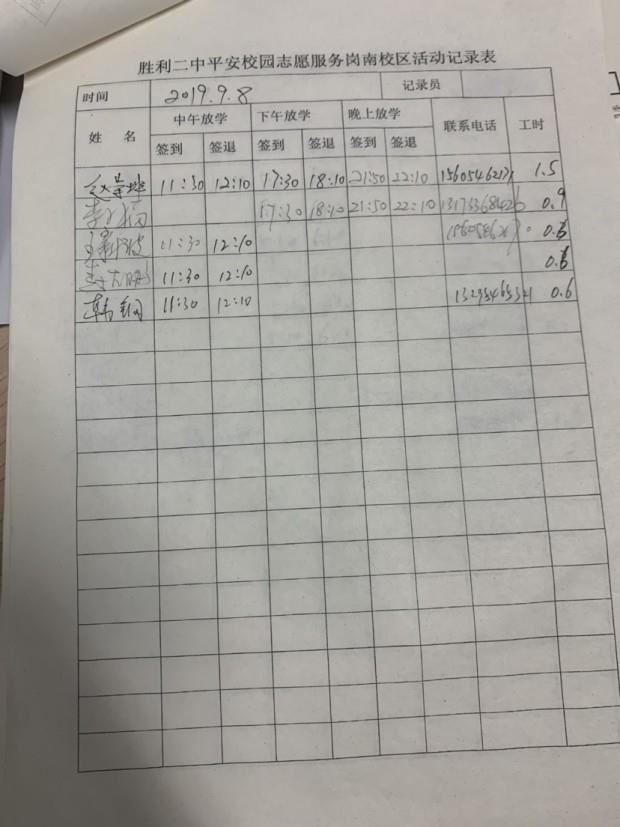 胜利二中平安校园志愿服务岗南校区活动记录表
时间 2019.9.8 记录员
姓名 中午放学 下午放学 晚上放学 联系电话 工时
签到 签退 签到 签退 签到 签退
11:30 12:10 17:30 18:10 21:50 22:10 1.5
17:30 18:10 21:50 22:10 0.9
11:30 12:10 0.6
11:30 12:10 0.6
11:30 12:10 0.6